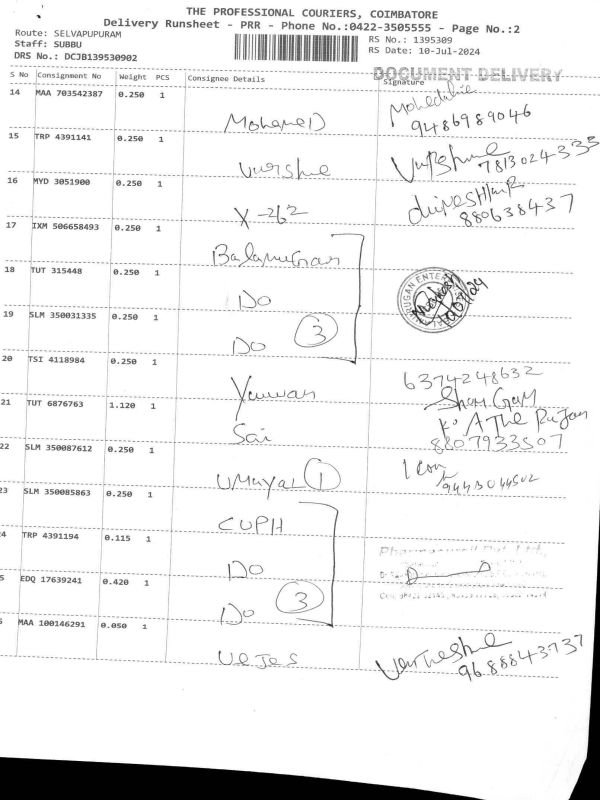 THE PROFESSIONAL COURIERS, COIMBATORE
Delivery Runsheet - PRR - Phone No.:0422-3505555 - Page No.:2
Route: SELVAPUPURAM
Staff: SUBBU
DRS No.: DCJB139530902
RS No.: 1395309
RS Date: 10-Jul-2024
DOCUMENT DELIVERY
S No Consignment No Weight PCS Consignee Details Signature
14 MAA 703542387 0.250 1
MohameD
9486989046
15 TRP 4391141 0.250 1
Varshne
7813024335
16 MYD 3051900 0.250 1
X-262
880638437
17 IXM 506658493 0.250 1
Balamurgan
18 TUT 315448 0.250 1
Do
19 SLM 350031335 0.250 1
Do 3
20 TSI 4118984 0.250 1
6374248632
21 TUT 6876763 1.120 1
Sai
8807933507
22 SLM 350087612 0.250 1
UMayal 1
Icon
9443044502
23 SLM 350085863 0.250 1
CUPH
4 TRP 4391194 0.115 1
Do
5 EDQ 17639241 0.420 1
Do 3
MAA 100146291 0.050 1
9688843737